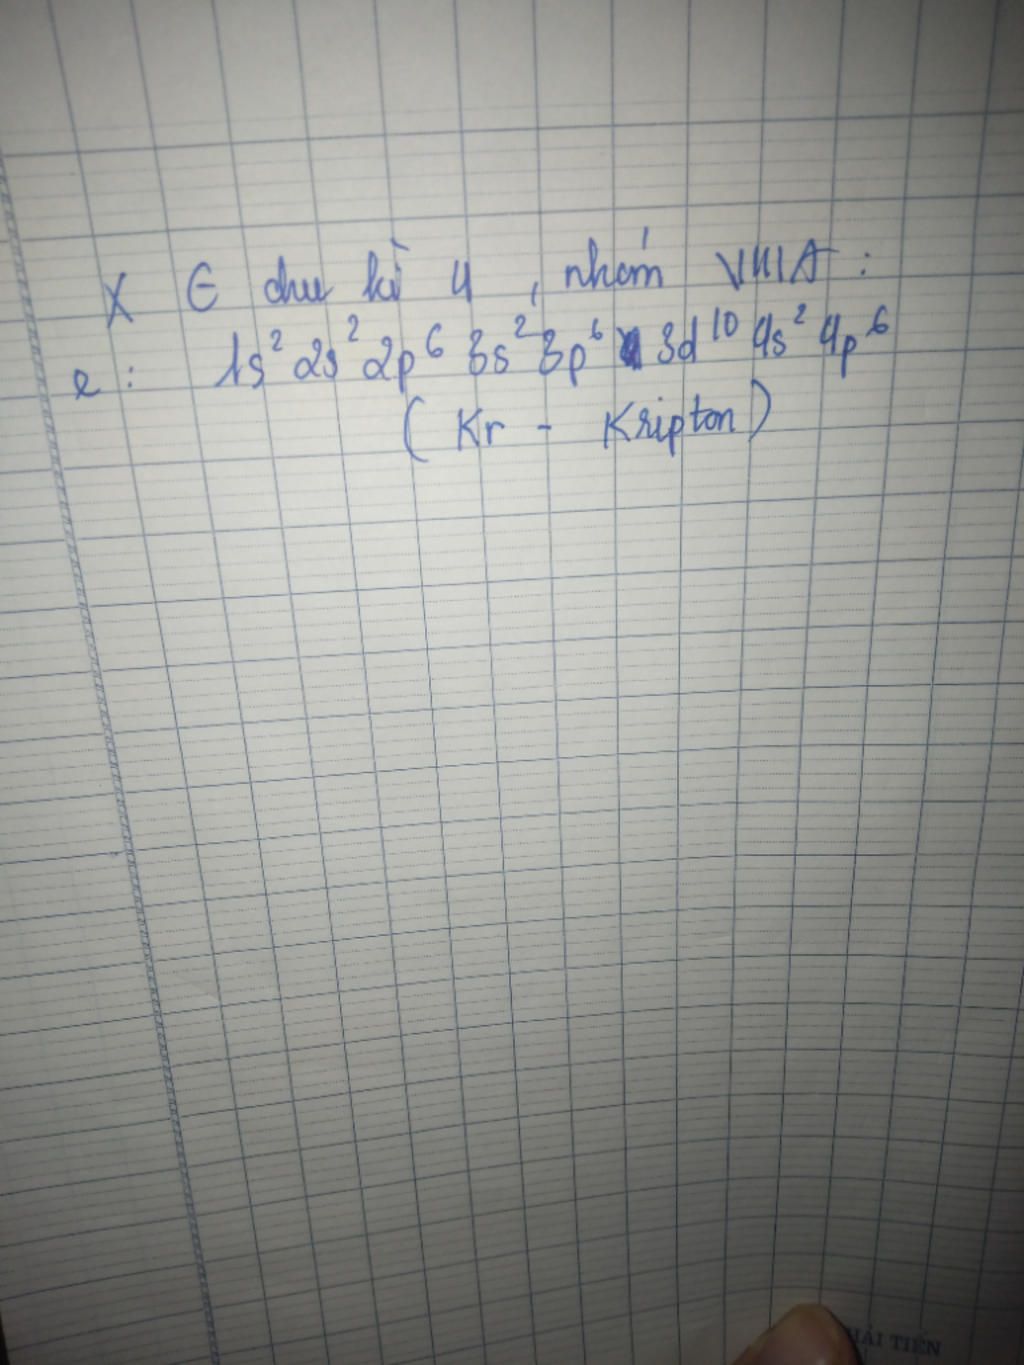 X ∈ chu kì 4, nhóm VIIIA:
e: 1s² 2s² 2p⁶ 3s² 3p⁶ 3d¹⁰ 4s² 4p⁶
(Kr - Kripton)
HẢI TIẾN